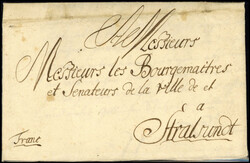 A Messieurs
Messieurs les Bourgemaitres
et Senateurs de la Ville de et
à
Stralsundt
Franc